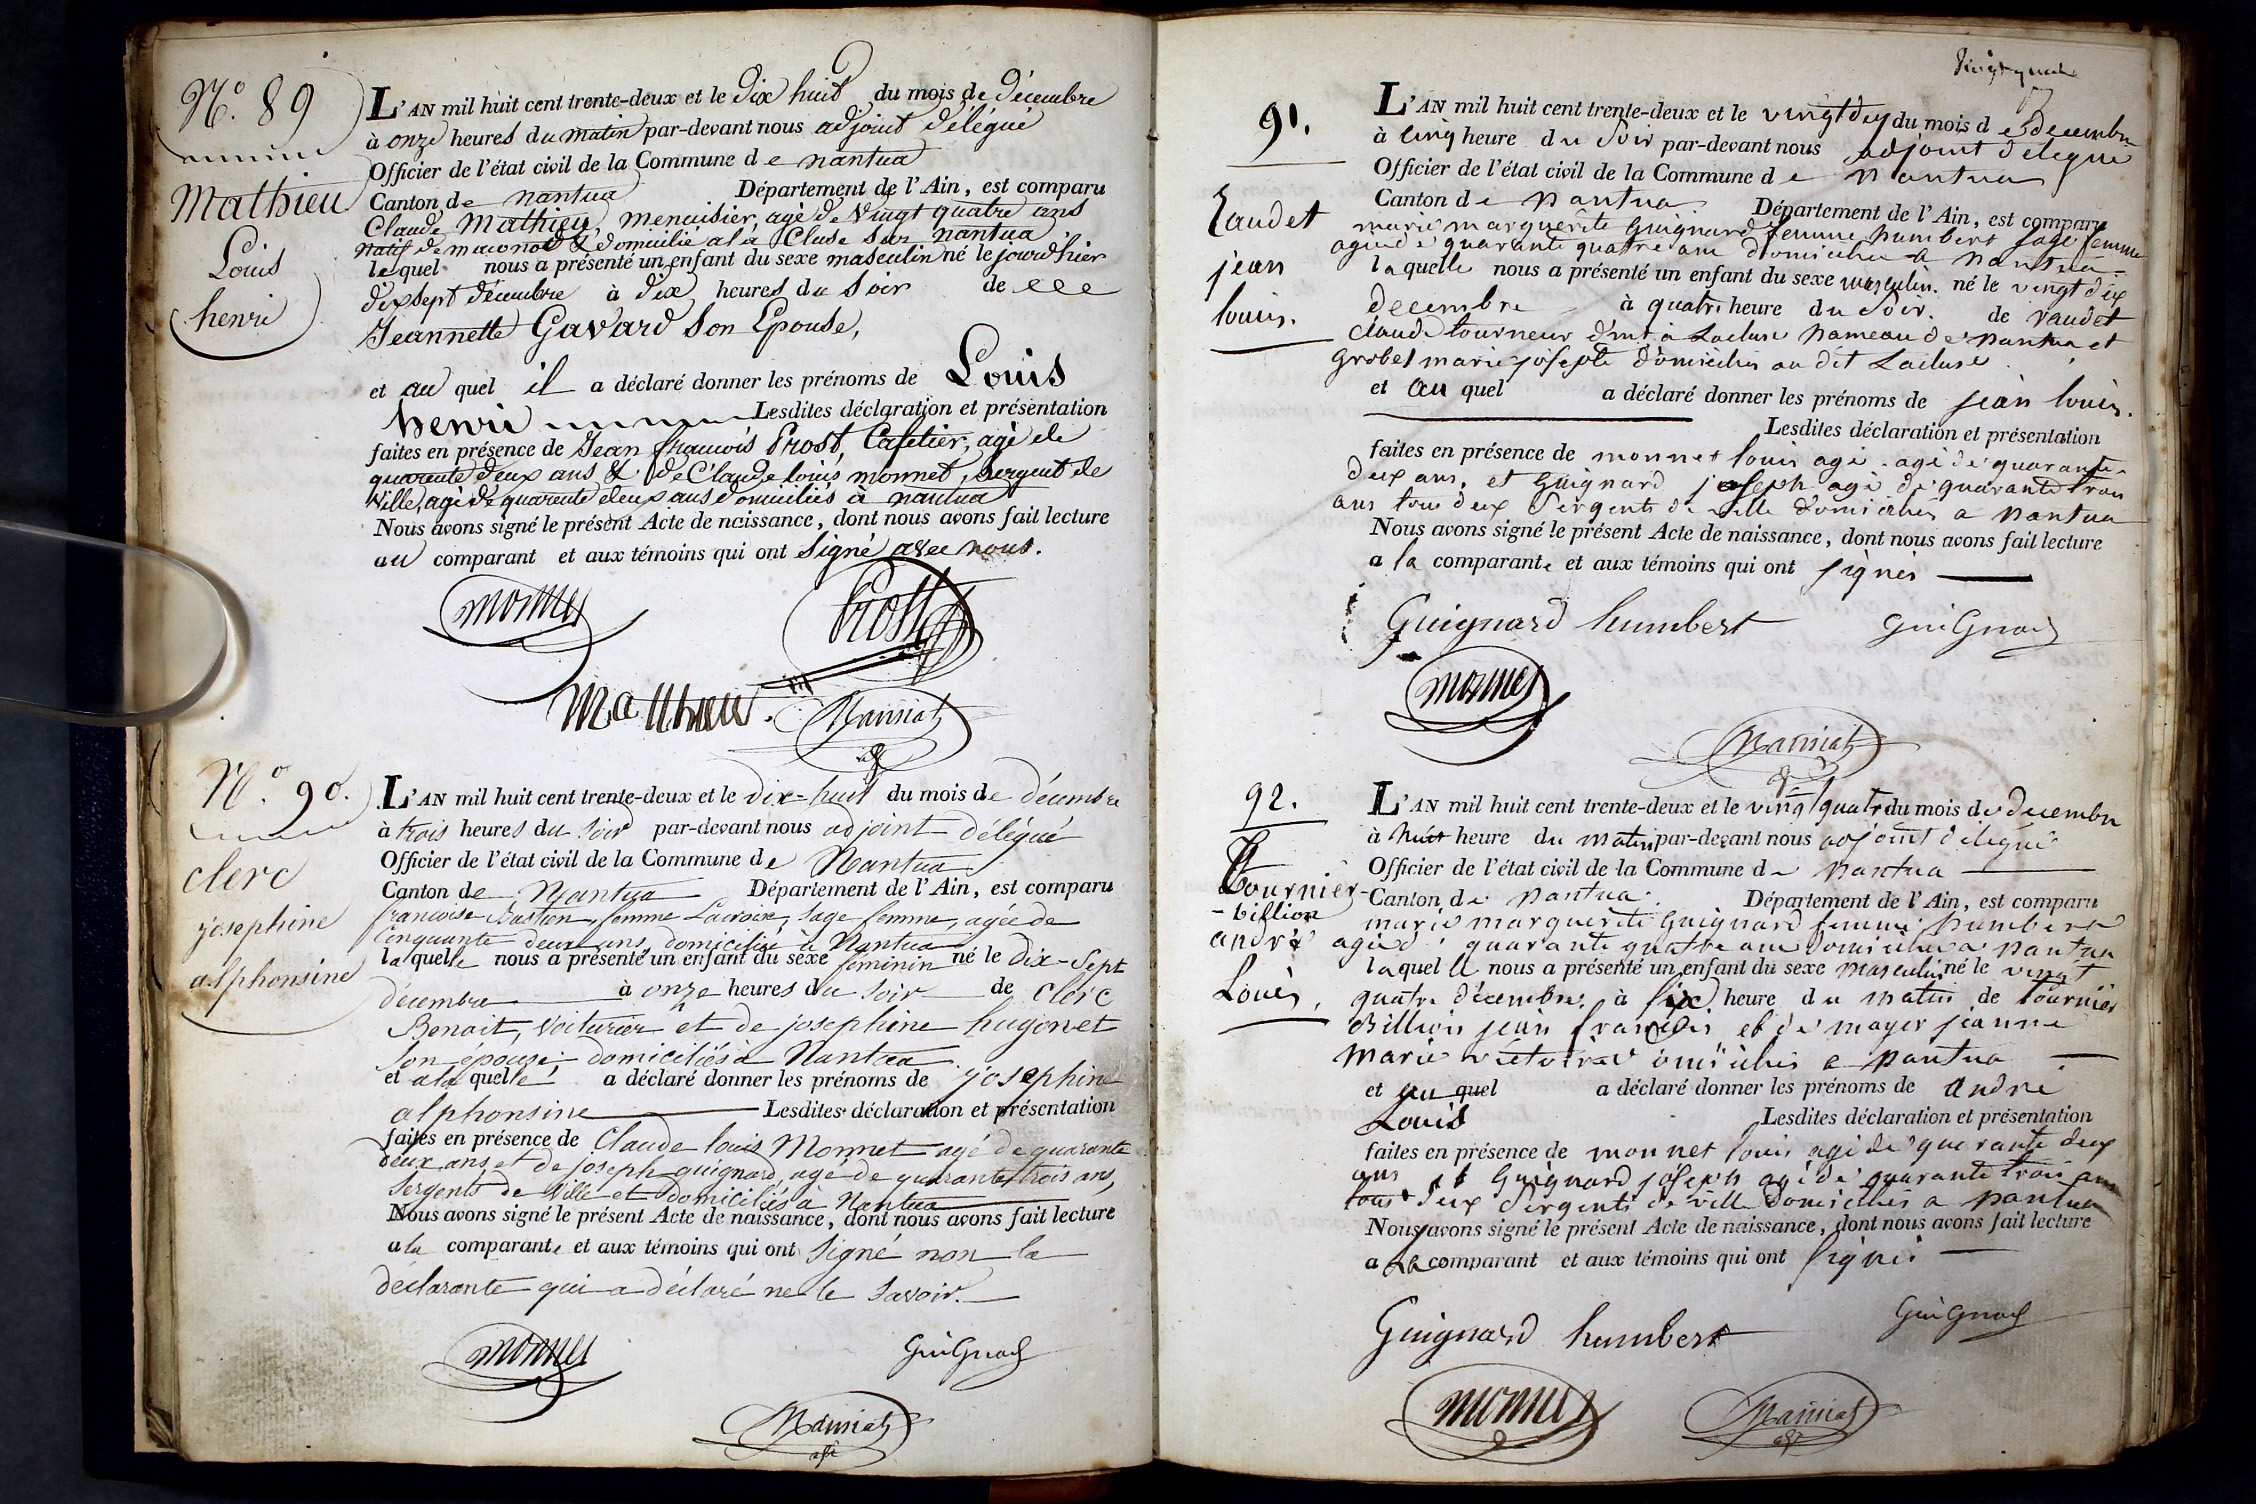 N.° 89
Mathieu
Louis
henri
L'AN mil huit cent trente-deux et le dix huit du mois de Décembre
à onze heures du matin par-devant nous adjoint délégué
Officier de l'état civil de la Commune de nantua
Canton de nantua Département de l'Ain, est comparu
Claude Mathieu, menuisier, agé de vingt quatre ans
natif de maconod & domicilié a la Cluse sur nantua
lequel nous a présenté un enfant du sexe masculin né le jourd'hier
dix sept décembre à dix heures du soir de
Jeannette Gavard Son Epouse,
et au quel il a déclaré donner les prénoms de Louis
henri Lesdites déclaration et présentation
faites en présence de Jean françois Prost, Cafetier, agé de
quarente deux ans & de Claude louis monnet, sergent de
Ville, agé de quarente deux ans domiciliés à nantua
Nous avons signé le présent Acte de naissance, dont nous avons fait lecture
au comparant et aux témoins qui ont signé avec nous.
monnet Prost
Mathieu
N.° 90.
clerc
josephine
alphonsine
L'AN mil huit cent trente-deux et le dix-huit du mois de décembre
à trois heures du soir par-devant nous adjoint délégué
Officier de l'état civil de la Commune de Nantua
Canton de Nantua Département de l'Ain, est comparu
francoise Bastien, femme Lacroix, sage femme, agée de
Cinquante deux ans, domiciliée à Nantua
laquelle nous a présenté un enfant du sexe féminin né le dix-sept
décembre à onze heures du soir de clerc
Benoit, voiturier et de josephine hugonet
son épouse domiciliés à Nantua
et a la quelle a déclaré donner les prénoms de josephine
alphonsine Lesdites déclaration et présentation
faites en présence de Claude louis Monnet agé de quarante
deux ans et de joseph guignard, agé de quarante trois ans,
sergents de Ville et domiciliés à Nantua
Nous avons signé le présent Acte de naissance, dont nous avons fait lecture
a la comparante et aux témoins qui ont signé non la
déclarante qui a déclaré ne le savoir.
monnet GuiGnard
91.
jean
louis.
L'AN mil huit cent trente-deux et le vingt deux du mois de decembre
à cinq heure du soir par-devant nous adjoint délégué
Officier de l'état civil de la Commune de nantua
Canton de nantua Département de l'Ain, est comparu
marie marguerite Guignard femme humbert sage femme
agée de quarante quatre ans domiciliée a nantua
laquelle nous a présenté un enfant du sexe masculin né le vingt deux
decembre à quatre heure du soir. de
claude tourneur dmt a Lacluse hameau de nantua et
grobet marie josephte domicilies au dit Lacluse
et au quel a déclaré donner les prénoms de jean louis.
Lesdites déclaration et présentation
faites en présence de monnet louis agé. agé de quarante
deux ans. et Guignard joseph agé de quarante trois
ans tous deux Sergents de ville domicilies a nantua
Nous avons signé le présent Acte de naissance, dont nous avons fait lecture
a la comparante et aux témoins qui ont signés
Guignard humbert GuiGnard
monnet
92.
Tournier
-billion
andré
Louis,
L'AN mil huit cent trente-deux et le vingt quatre du mois de decembre
à huit heure du matin par-devant nous adjoint delegué
Officier de l'état civil de la Commune de nantua
Canton de nantua. Département de l'Ain, est comparu
marie marguerite Guignard femme humbert
agée de quarante quatre ans domiciliée a nantua
laquelle nous a présenté un enfant du sexe masculin né le vingt
quatre décembre à six heure du matin de tournier
Billion jean francois et de mayer jeanne
marie victoire domicilies a nantua
et au quel a déclaré donner les prénoms de andré
Louis Lesdites déclaration et présentation
faites en présence de monnet louis agé de quarante deux
ans et Guignard joseph agé de quarante trois ans
tous deux Sergents de ville domicilies a nantua
Nous avons signé le présent Acte de naissance, dont nous avons fait lecture
a la comparant et aux témoins qui ont signés
Guignard humbert GuiGnard
monnet